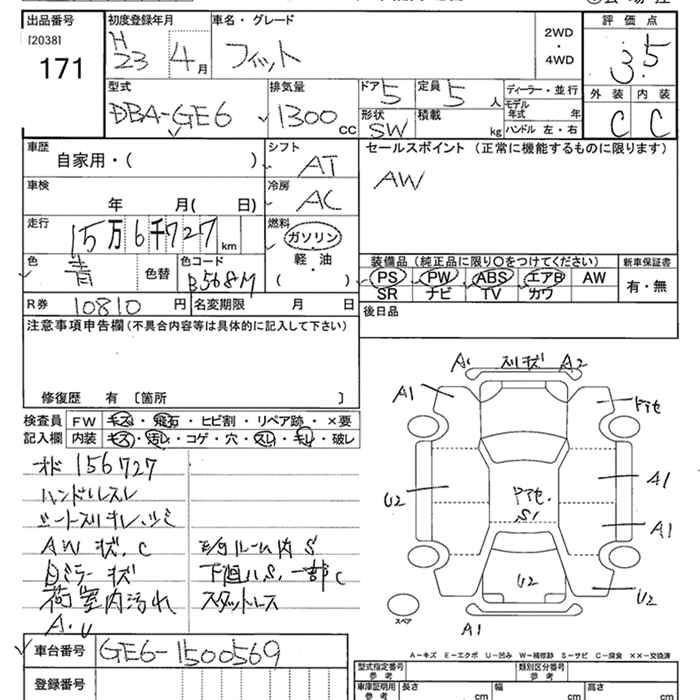 出品番号
[2038]
171
初度登録年月
H23 4月
車名・グレード
フィット
2WD
・
4WD
評価点
3.5
外装 内装
C C
型式
DBA-GE6
排気量
1300 CC
ドア 5
定員 5 人
形状 SW
積載 kg
ディーラー・並行
モデル年式 年
ハンドル 左・右
車歴
自家用・( )
シフト
AT
セールスポイント (正常に機能するものに限ります)
AW
車検
年 月( 日)
冷房
AC
走行
15万6千727 km
燃料
ガソリン
軽・油
( )
色
青
色替
色コード
B568M
装備品 (純正品に限り○をつけてください)
PS PW ABS エアB AW
SR ナビ TV カワ
新車保証書
有・無
R券 10810 円
名変期限 月 日
後日品
注意事項申告欄 (不具合内容等は具体的に記入して下さい)
修復歴 有 〔箇所 〕
検査員記入欄
FW キズ・飛石・ヒビ割・リペア跡・×要
内装 キズ・汚レ・コゲ・穴・スレ・キレ・破レ
オド 156727
ハンドルスレ
シートスリキレ、シミ
AW キズ、C
Bミラーキズ
荷室内汚れ
A.U
下廻りS、一部C
スタットレス
A1 スリキズ A2
A1
U2
A1
A1
S1
U2
U2
A1
スペア
A−キズ E−エクボ U−凹み W−補修跡 S−サビ C−腐食 ××−交換済
車台番号 GE6-1500569
登録番号
型式指定番号 参考
類別区分番号 参考
車庫証明用 参考
長さ cm
幅 cm
高さ cm